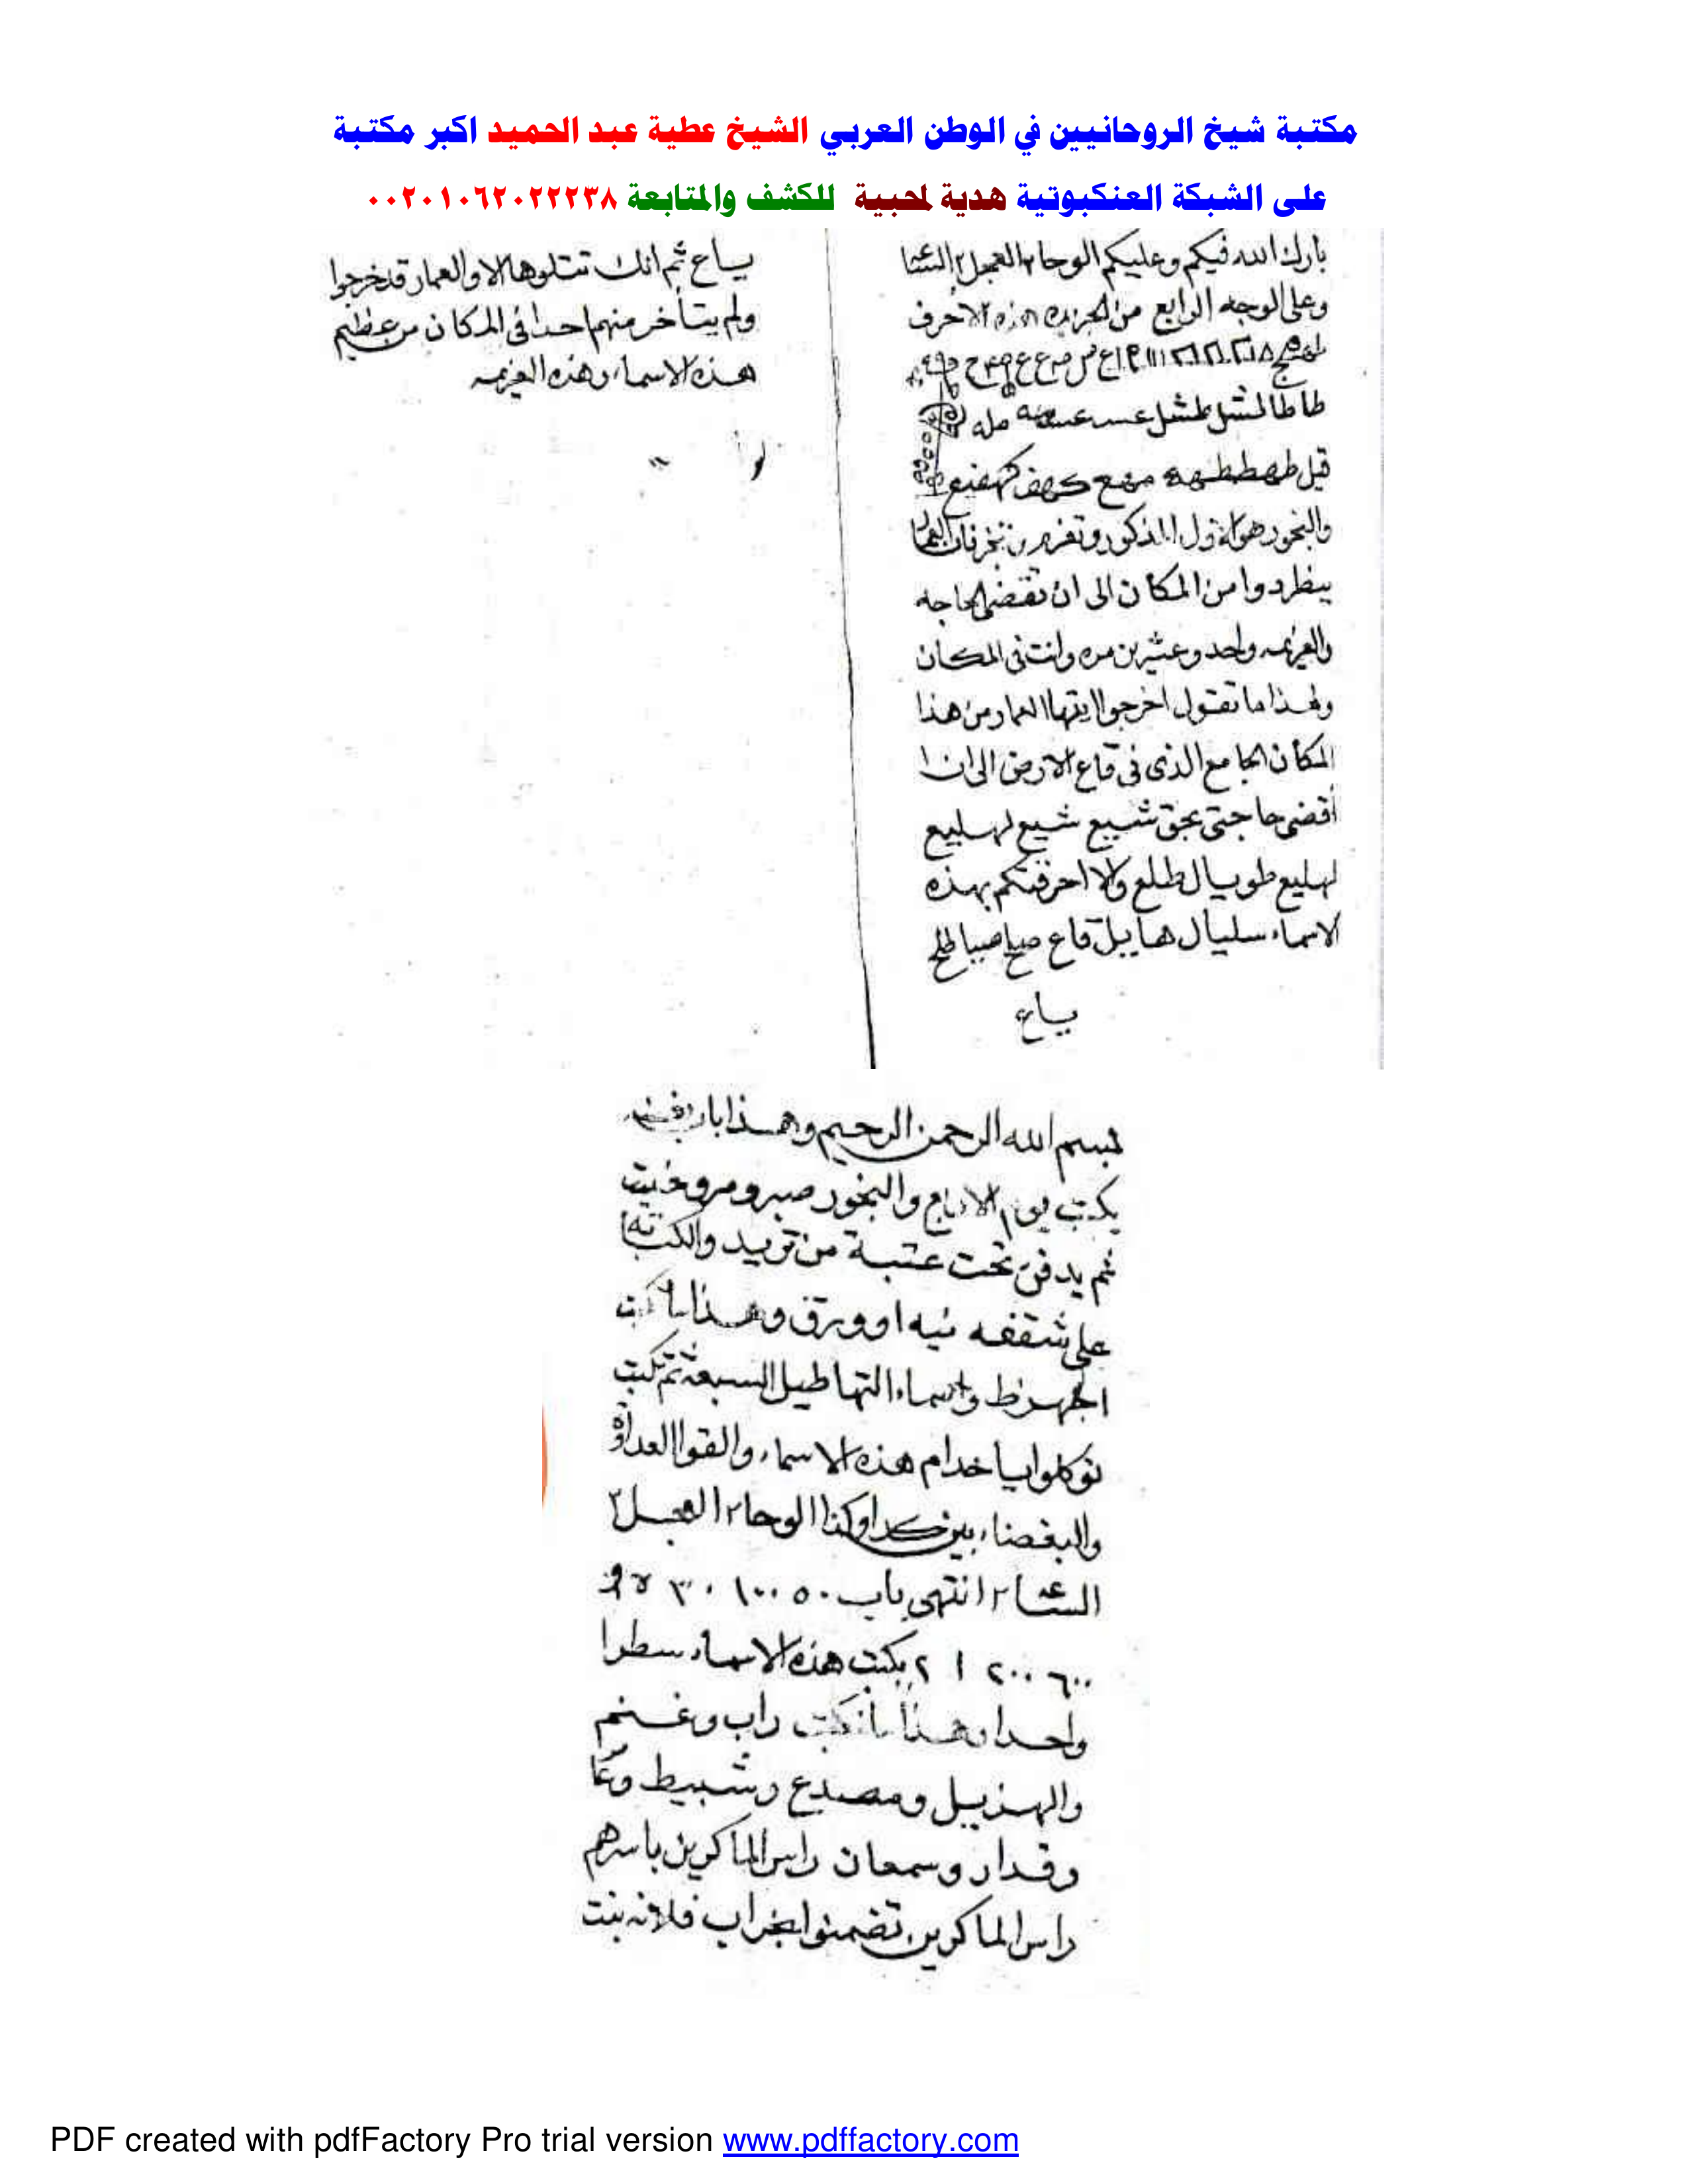 مكتبة شيخ الروحانيين في الوطن العربي الشيخ عطية عبد الحميد اكبر مكتبة
على الشبكة العنكبوتية هدية لمحبية للكشف والمتابعة ٠٠٢٠١٠٦٢٠٢٢٢٣٨
بارك الله فيكم وعليكم الوحا ٢ العجل ٢ الساعة
وعلى الوجه الرابع من الجريده هذه الاحرف
طاطا لمشل طشل
قيل طهططهه كهف
والبخور هو الاول المذكور وتعزم فان العمار
ينطردوا من المكان الى ان تقضى الحاجه
والعزيمه واحد وعشرين مره وانت في المكان
وهذا ما تقول اخرجوا ايتها العمار من هذا
المكان الجامع الذى في قاع الارض الى ان ا
أقضى حاجتى بحق شييع شييع لهليع
لهليع طويال طلع والا احرقتكم بهذه
الاسماء سليال هاييل قاع
يساع
يساع ثم انك تتلوها الا والعمار قد خرجوا
ولم يتأخر منهم احدا في المكان من عظيم
هذه الاسماء وهذه العزيمه
بسم الله الرحمن الرحيم وهذا باب
يكتب يوم الاربع والبخور صبر ومر وحنتيت
ثم يدفن تحت عتبة من تريد والكتابه
على شقفه نيه او ورق وهذا ما تكتب
اجهزط واسماء التهاطيل السبعة ثم تكتب
توكلوا يا خدام هذه الاسماء والقوا العداوة
والبغضاء بين كدا وكذا الوحا ٢ العجل ٢
الساعة ٢ انتهى باب ٥٠ ١٠٠ ٣٠
٦٠٠ ٢٠٠ ١ ٢ يكتب هذه الاسماء سطرا
واحدا وهذا ما تكتب راب وغنم
والهزيل ومصدع وشبيط
وقدار وسمعان راس الماكرين باسرهم
راس الماكرين تضمنوا بخراب فلانه بنت
PDF created with pdfFactory Pro trial version www.pdffactory.com